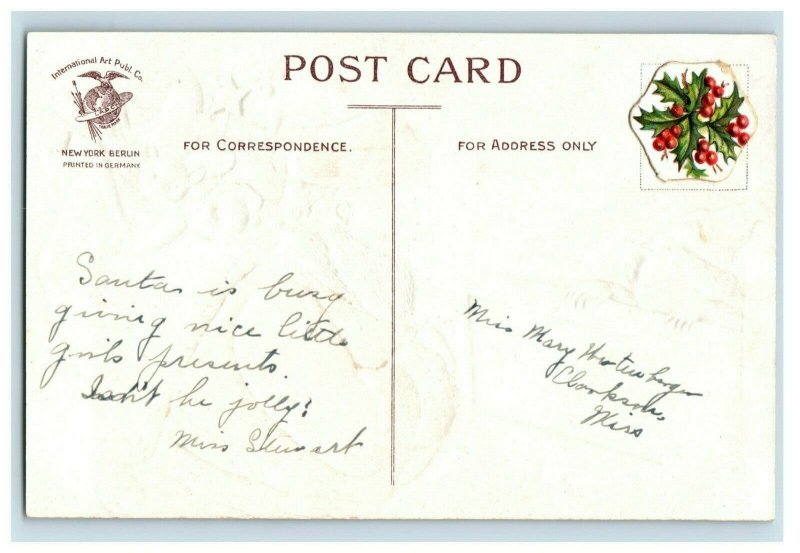 International Art Publ. Co.
NEW YORK BERLIN
PRINTED IN GERMANY
POST CARD
FOR CORRESPONDENCE.
FOR ADDRESS ONLY
Santa is busy
giving nice little
girls presents.
Isn't he jolly?
Miss Stewart
Miss Mary
Clarkson,
Miss